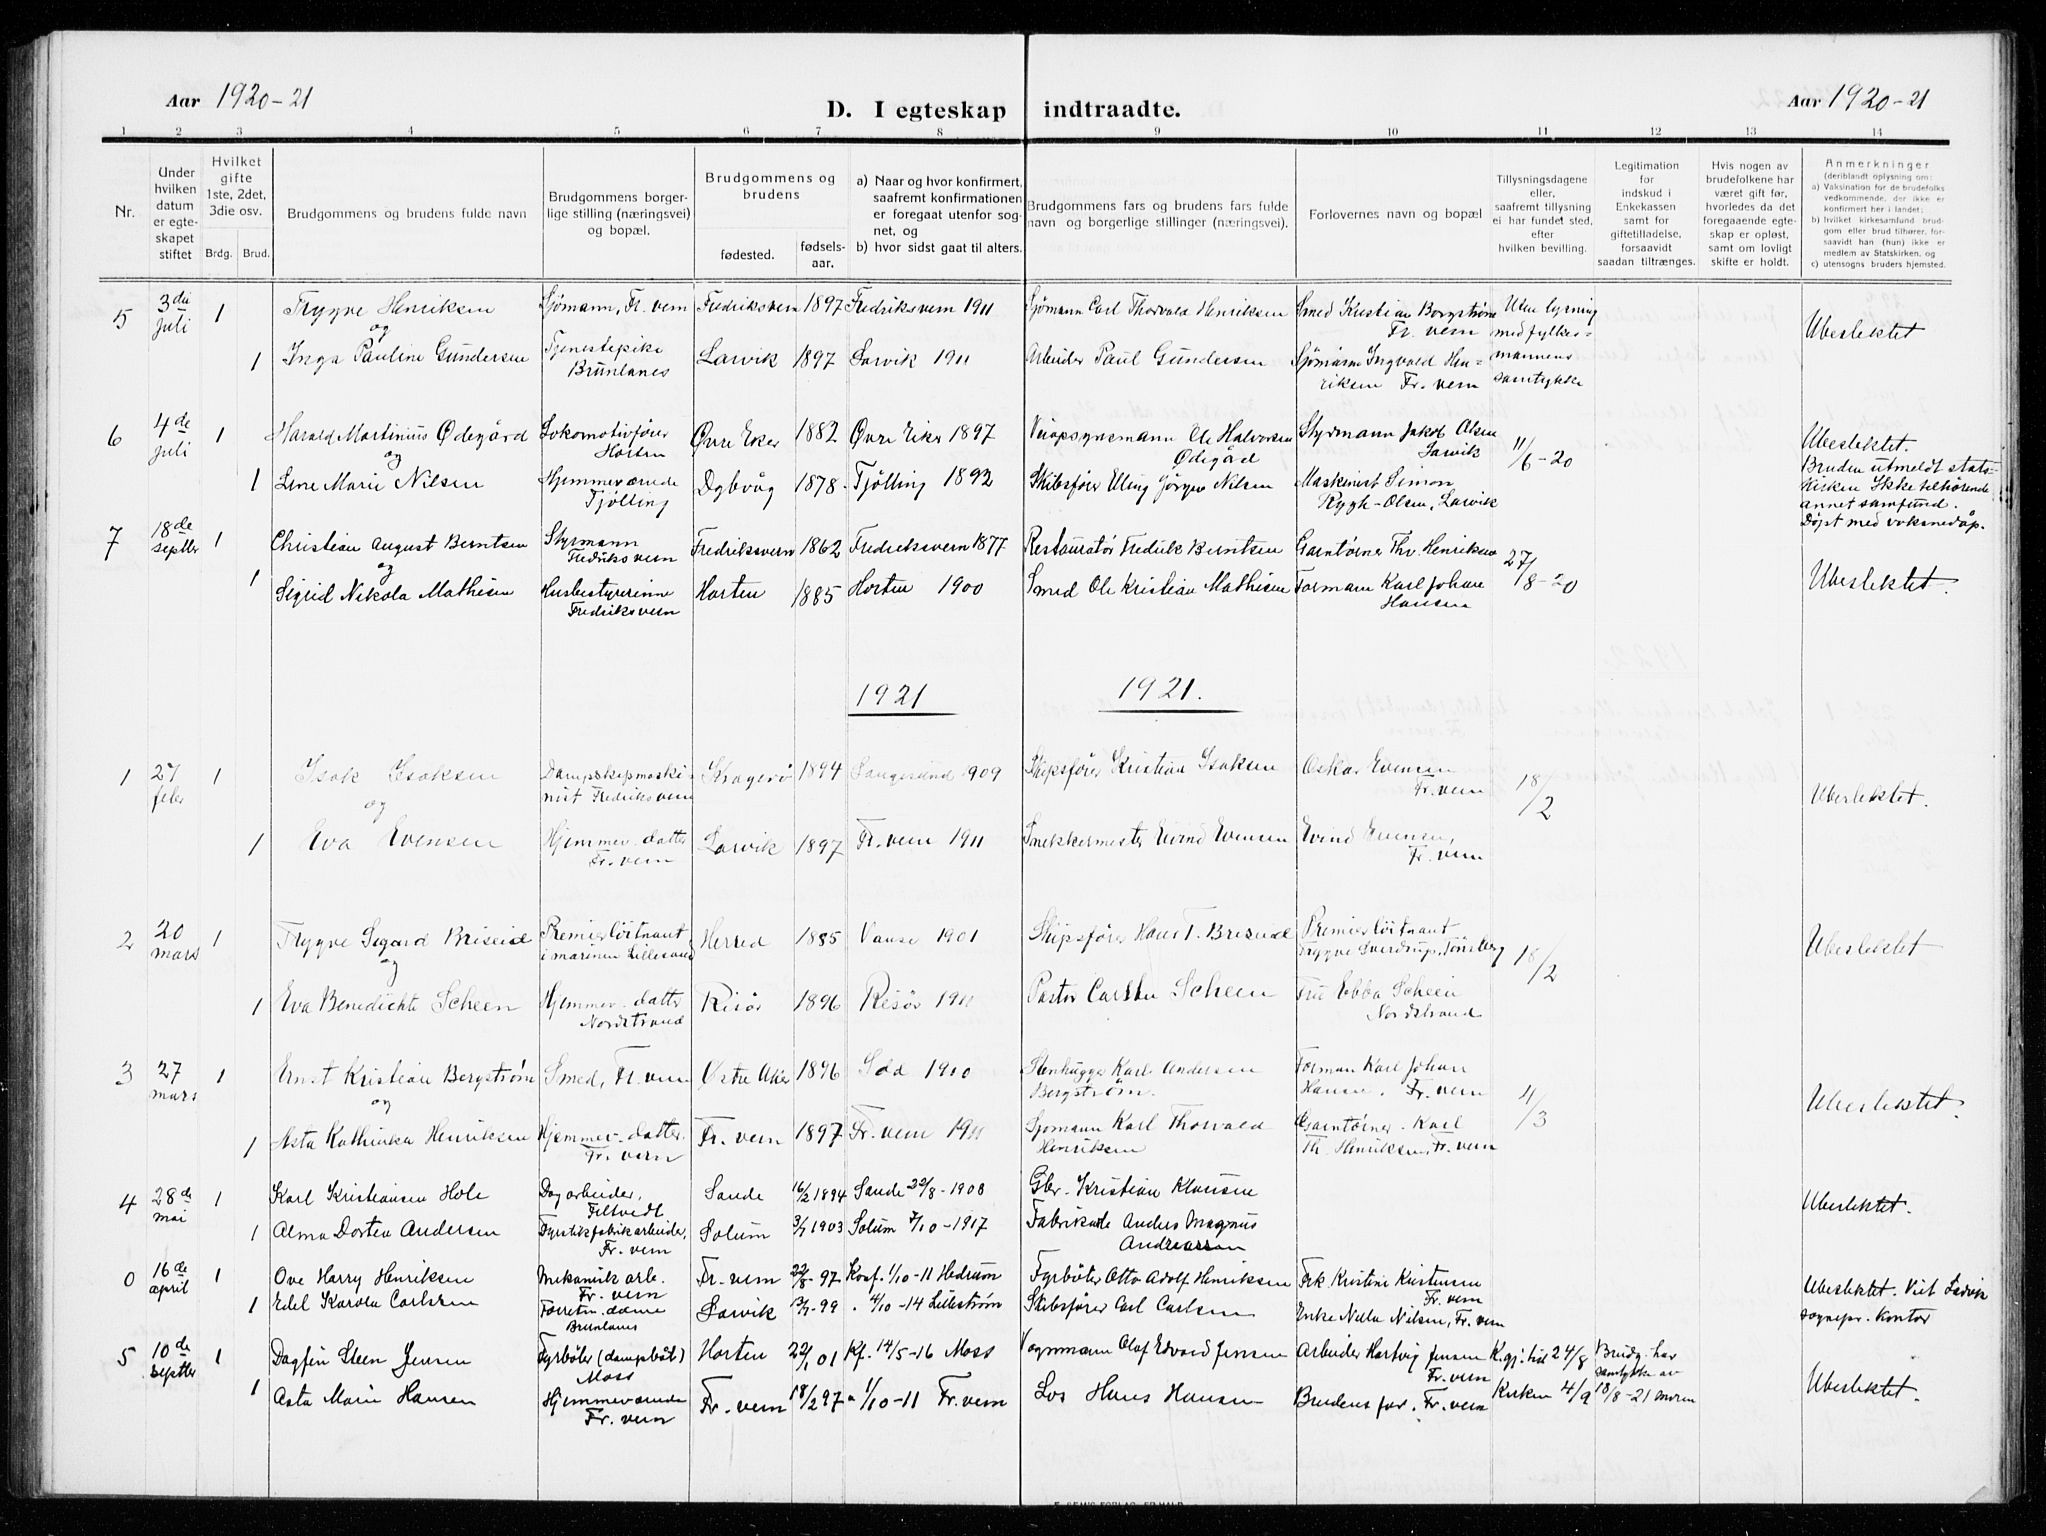 Aar 1920-21
D. I egteskap indtraadte.
Aar 1920-21
1 2 3 4 5 6 7 8 9 10 11 12 13 14
Nr.
Under hvilken datum er egteskapet stiftet
Hvilket gifte 1ste, 2det, 3die osv.
Brdg. Brud.
Brudgommens og brudens fulde navn
Brudgommens borgerlige stilling (næringsvei) og bopæl.
Brudgommens og brudens
fødested. fødselsaar.
a) Naar og hvor konfirmert, saafremt konfirmationen er foregaat utenfor sognet, og
b) hvor sidst gaat til alters.
Brudgommens fars og brudens fars fulde navn og borgerlige stillinger (næringsvei).
Forlovernes navn og bopæl
Tillysningsdagene eller, saafremt tillysning ei har fundet sted, efter hvilken bevilling.
Legitimation for indskud i Enkekassen samt for giftetilladelse, forsaavidt saadan tiltrænges.
Hvis nogen av brudefolkene har været gift før, hvorledes da det foregaaende egteskap er opløst, samt om lovligt skifte er holdt.
Anmerkninger
(deriblandt oplysning om:
a) Vaksination for de brudefolks vedkommende, der ikke er konfirmert her i landet;
b) hvilket kirkesamfund brudgom eller brud tilhører, forsaavidt han (hun) ikke er medlem av Statskirken, og
c) utensogns bruders hjemsted.
5 3die juli 1 Trygve Henriksen Sjømann, Fr. vern Fredriksvern 1897 Fredriksvern 1911 Sjømann Carl Thorvald Henriksen Smed Kristian Bergstrøm Fr. vern Uten lysning med fylkesmannens samtykke Ubeslektet
og
1 Inga Pauline Gundersen Tjenestepike Brunlanes Larvik 1897 Larvik 1911 Arbeider Paul Gundersen Sjømann Ingvald Henriksen Fr. vern
6 4de juli 1 Harald Martinius Ødegård Lokomotivfører Horten Øvre Eker 1882 Øvre Eiker 1897 Ole Halvorsen Ødegård Styrmann Jakob Olsen Larvik 11/6-20 Ubeslektet.
og
1 Lene Marie Nilsen Hjemmeværende Tjølling Dybvåg 1878 Tjølling 1892 Skibsfører Elling Jørgen Nilsen Maskinist Simon Rygh-Olsen, Larvik Bruden utmeldt statskirken Ikke tilhørende annet samfund. Døpt med voksnedåp.
7 18de septbr 1 Christian August Berntsen Styrmann Fredriksvern Fredriksvern 1862 Fredriksvern 1877 Restauratør Fredrik Berntsen Garntørner Thv. Henriksen 27/8-20 Ubeslektet.
og
1 Sigrid Nikola Mathisen Husbestyrerinne Fredriksvern Horten 1885 Horten 1900 Smed Ole Kristian Mathisen Formann Karl Johan Hansen
1921 1921.
1 27 febr 1 Isak Isaksen Dampskipmaskinist Fredriksvern Kragerø 1894 Langesund 1909 Skipsfører Kristian Isaksen Oskar Evensen Fr. vern 18/2 Ubeslektet.
og
1 Eva Evensen Hjemmev. datter Fr. vern Larvik 1897 Fr. vern 1911 Snekkermester Eivind Evensen Eivind Evensen, Fr. vern
2 20 mars 1 Trygve Segard Briseid Premierløitnant i marinen Lillesand Herred 1885 Vanse 1901 Skipsfører Hans T. Briseid Premierløitnant Trygve Sverdrup, Tønsberg 18/2 Ubeslektet
og
1 Eva Benedichte Scheen Hjemmev. datter Nordstrand Risør 1896 Risør 1911 Pastor Carsten Scheen Fru Ebba Scheen Nordstrand
3 27 mars 1 Ernst Kristian Bergstrøm Smed, Fr. vern Østre Aker 1896 1910 Stenhugger Karl Andersen Bergstrøm. Forman Karl Johan Hansen. Fr. vern 4/3 Ubeslektet.
og
1 Asta Kathinka Henriksen Hjemmev. datter. Fr. vern Fr. vern 1897 Fr. vern 1911 Sjømann Karl Thorvald Henriksen Garntørner. Karl Th. Henriksen, Fr. vern
4 28de mai 1 Karl Kristiansen Hole Dagarbeider, Filtvedt Sande 16/2 1894 Sande - 1908 Gbr. Kristian Klausen Ubeslektet.
1 Alma Dortea Andersen Fyrstikfabrikarbeider, Fr. vern Solum 3/7 1903 Solum 7/10-1917 Fabrikarb Anders Magnus Andreassen
0 16de april 1 Ove Harry Henriksen Mekanisk arb. Fr. vern Fr. vern 22/8-97 Konf. 1/10-11 Hedrum Fyrbøter Otto Adolf Henriksen Frk. Kristine Kristensen Fr. vern Ubeslektet. Viet Larvik sognepr. kontor
1 Edel Karola Carlsen Forretn. dame Brunlanes Larvik 3/7-99 " 4/10-14 Lillestrøm Skibsfører Carl Carlsen Enke Nella Nilsen, Fr. vern
5 10de septbr 1 Dagfin Steen Jensen Fyrbøter (dampbåt) Moss Horten 22/1 01 Kf. 14/5-16 Moss Vognmann Olaf Edvard Jensen Arbeider Hartvig Jensen Fr. vern K.gj. tid 24/8 Brudg. har samtykke av 18/8-21 moren Ubeslektet.
1 Asta Marie Hansen Hjemmeværende Fr. vern Fr. vern 18/2 97 " 1/10-11 Fr. vern Los Hans Hansen Brudens far. Fr. vern Kirken 4/9